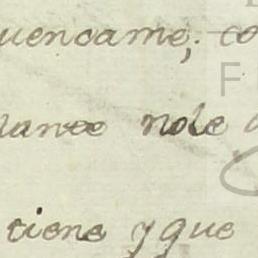 uencame; co
lante nole
tiene y que